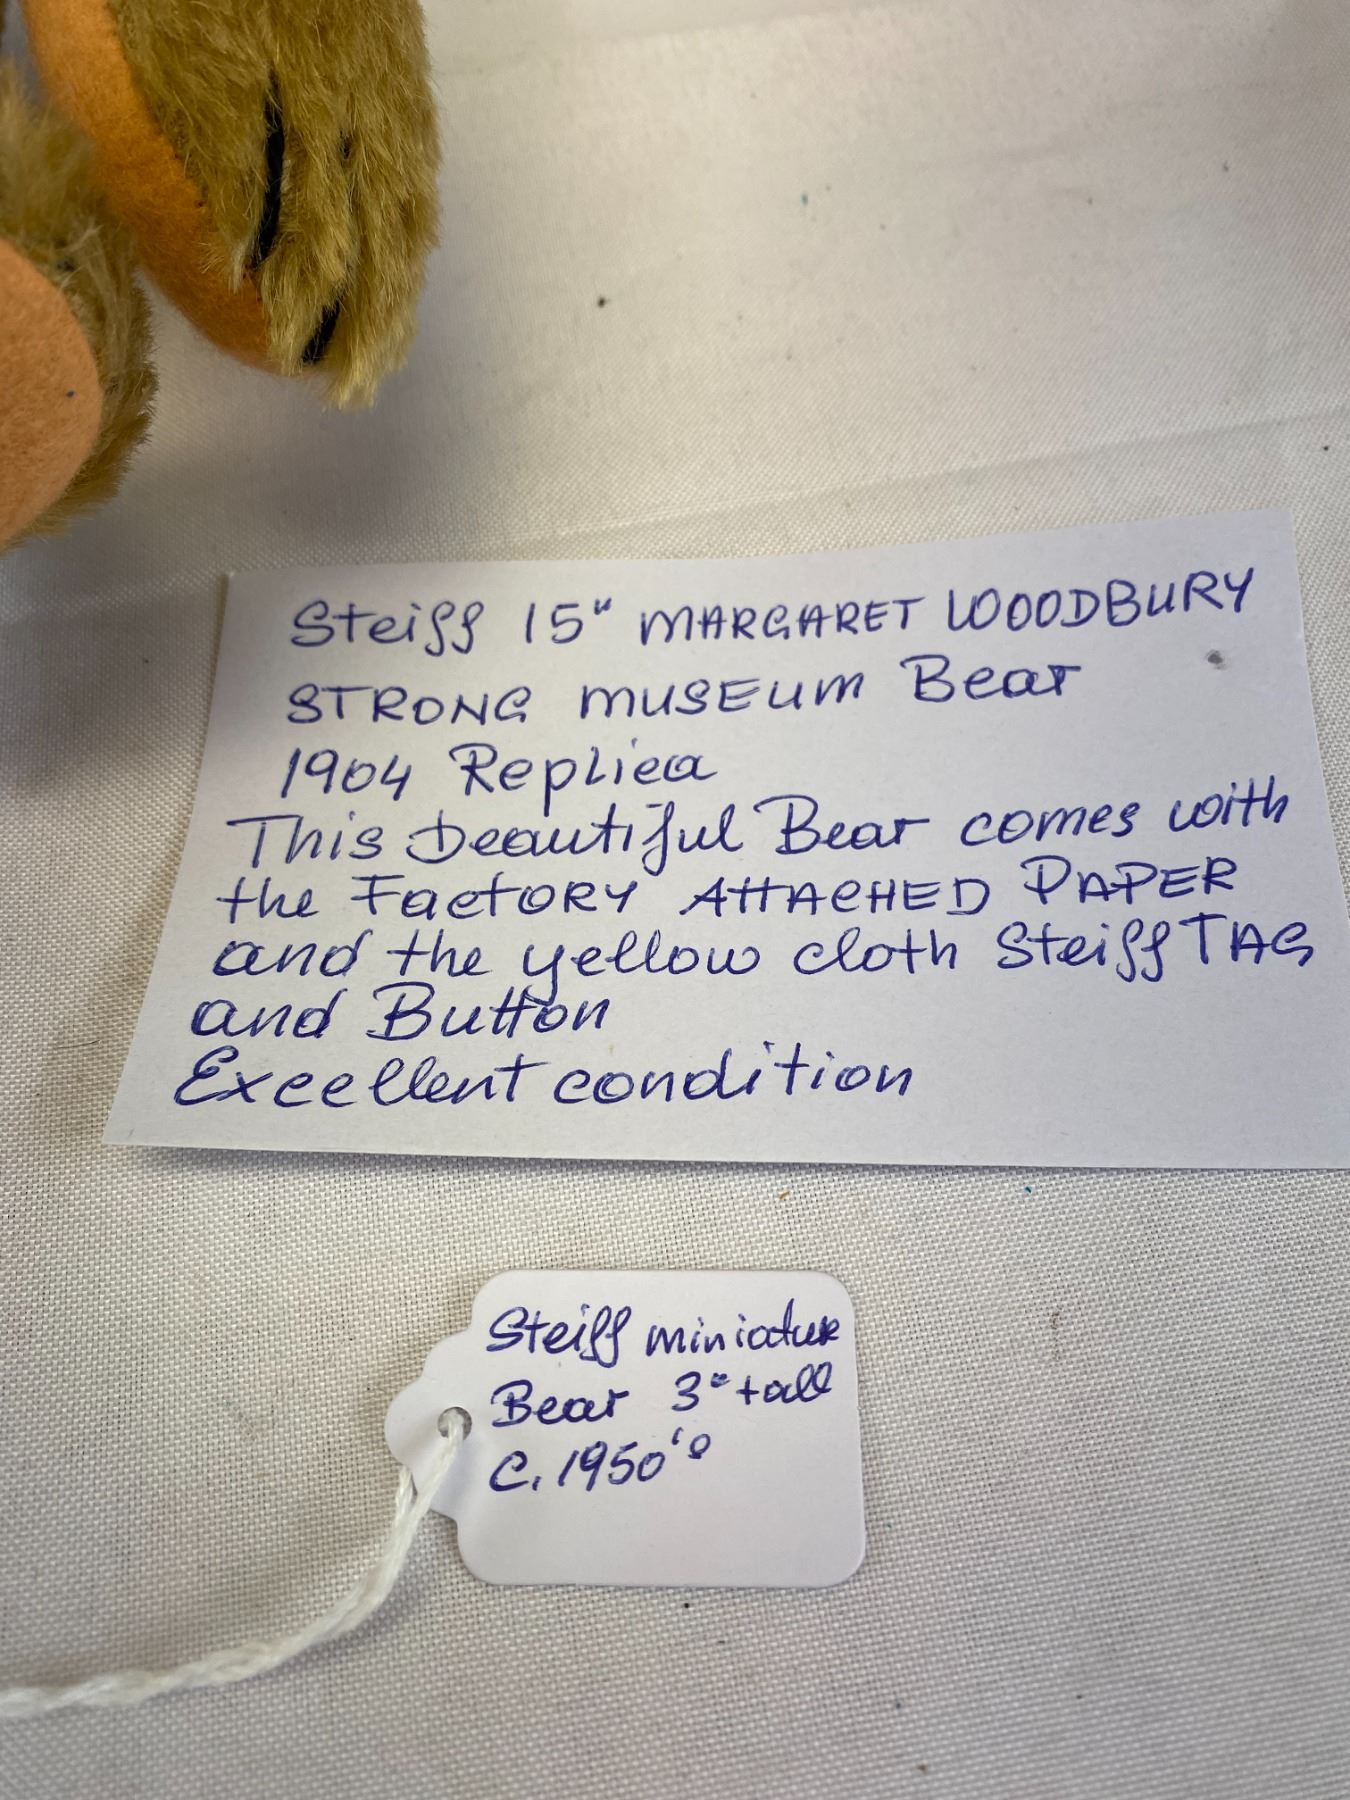 Steiff 15" MARGARET WOODBURY
STRONG MUSEUM Bear
1904 Replica
This beautiful Bear comes with
the FactORY ATTACHED PAPER
and the yellow cloth Steiff TAG
and Button
Excellent condition
Steiff miniature
Bear 3" tall
C. 1950's